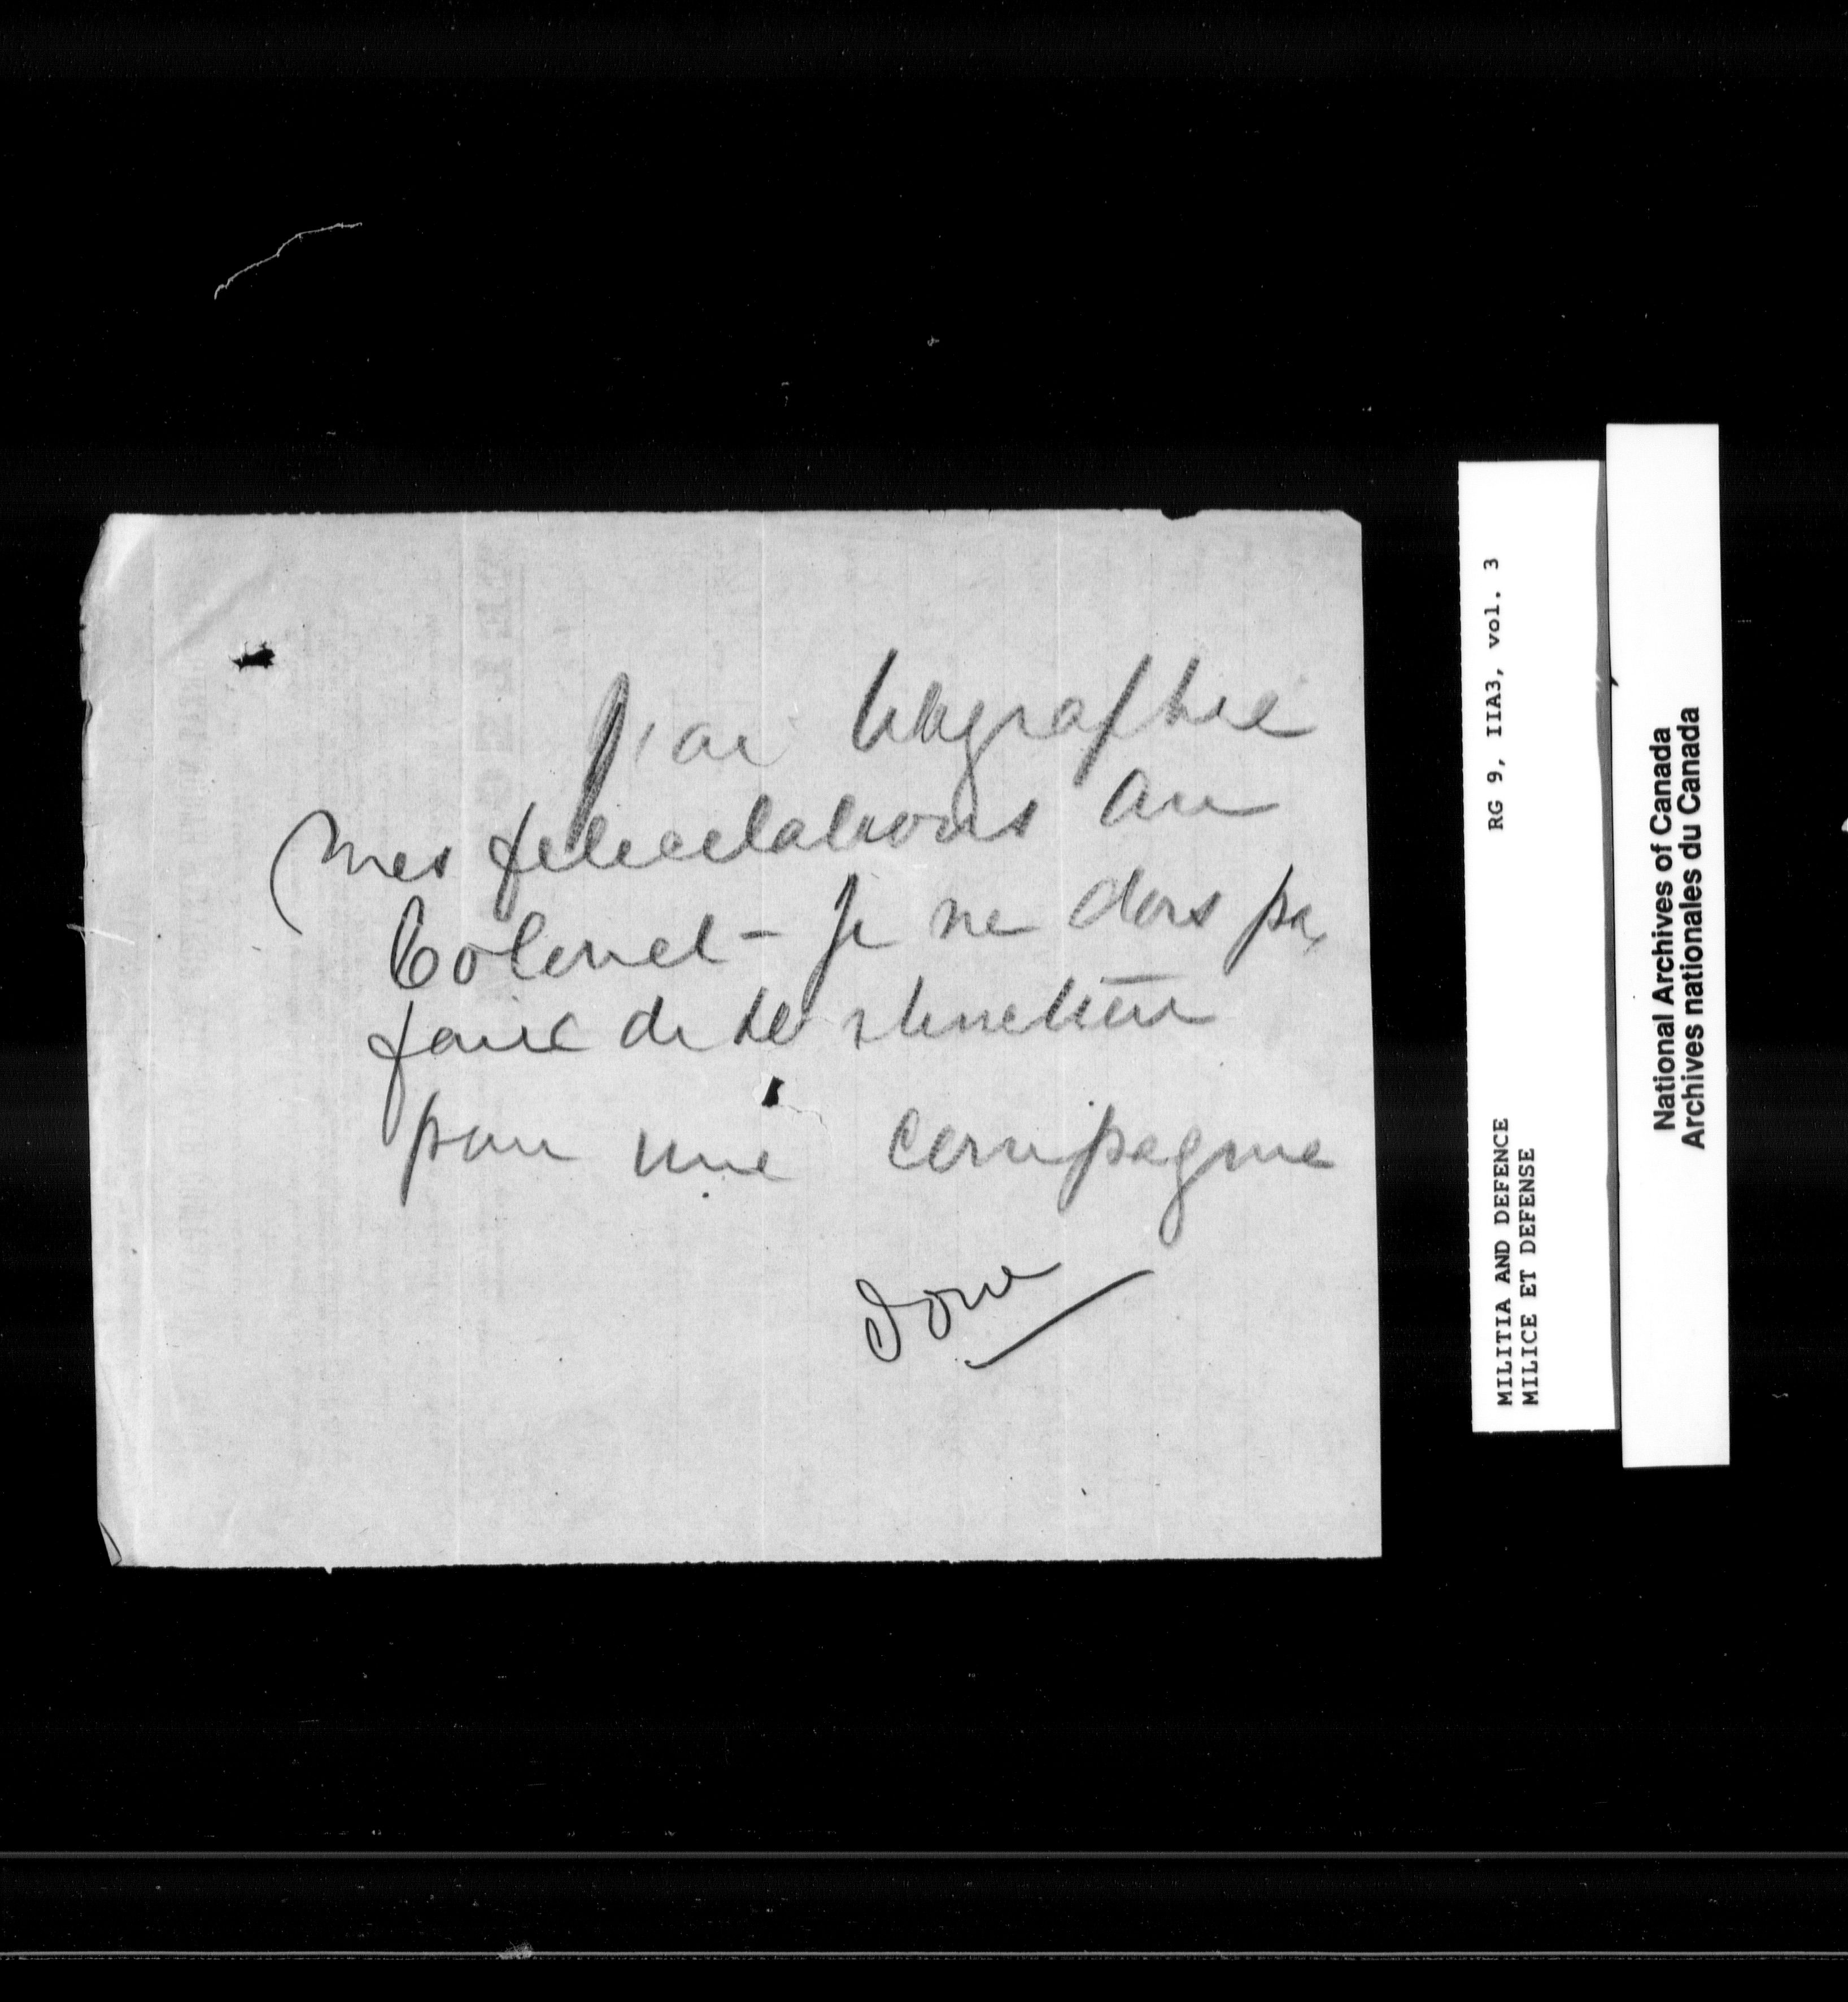 J'ai telegraphie
mes felicitations au
Colonel - Je ne dois pas
faire de
pour une compagnie
Done
RG 9, IIA3, vol. 3
MILITIA AND DEFENCE
MILICE ET DEFENSE
National Archives of Canada
Archives nationales du Canada